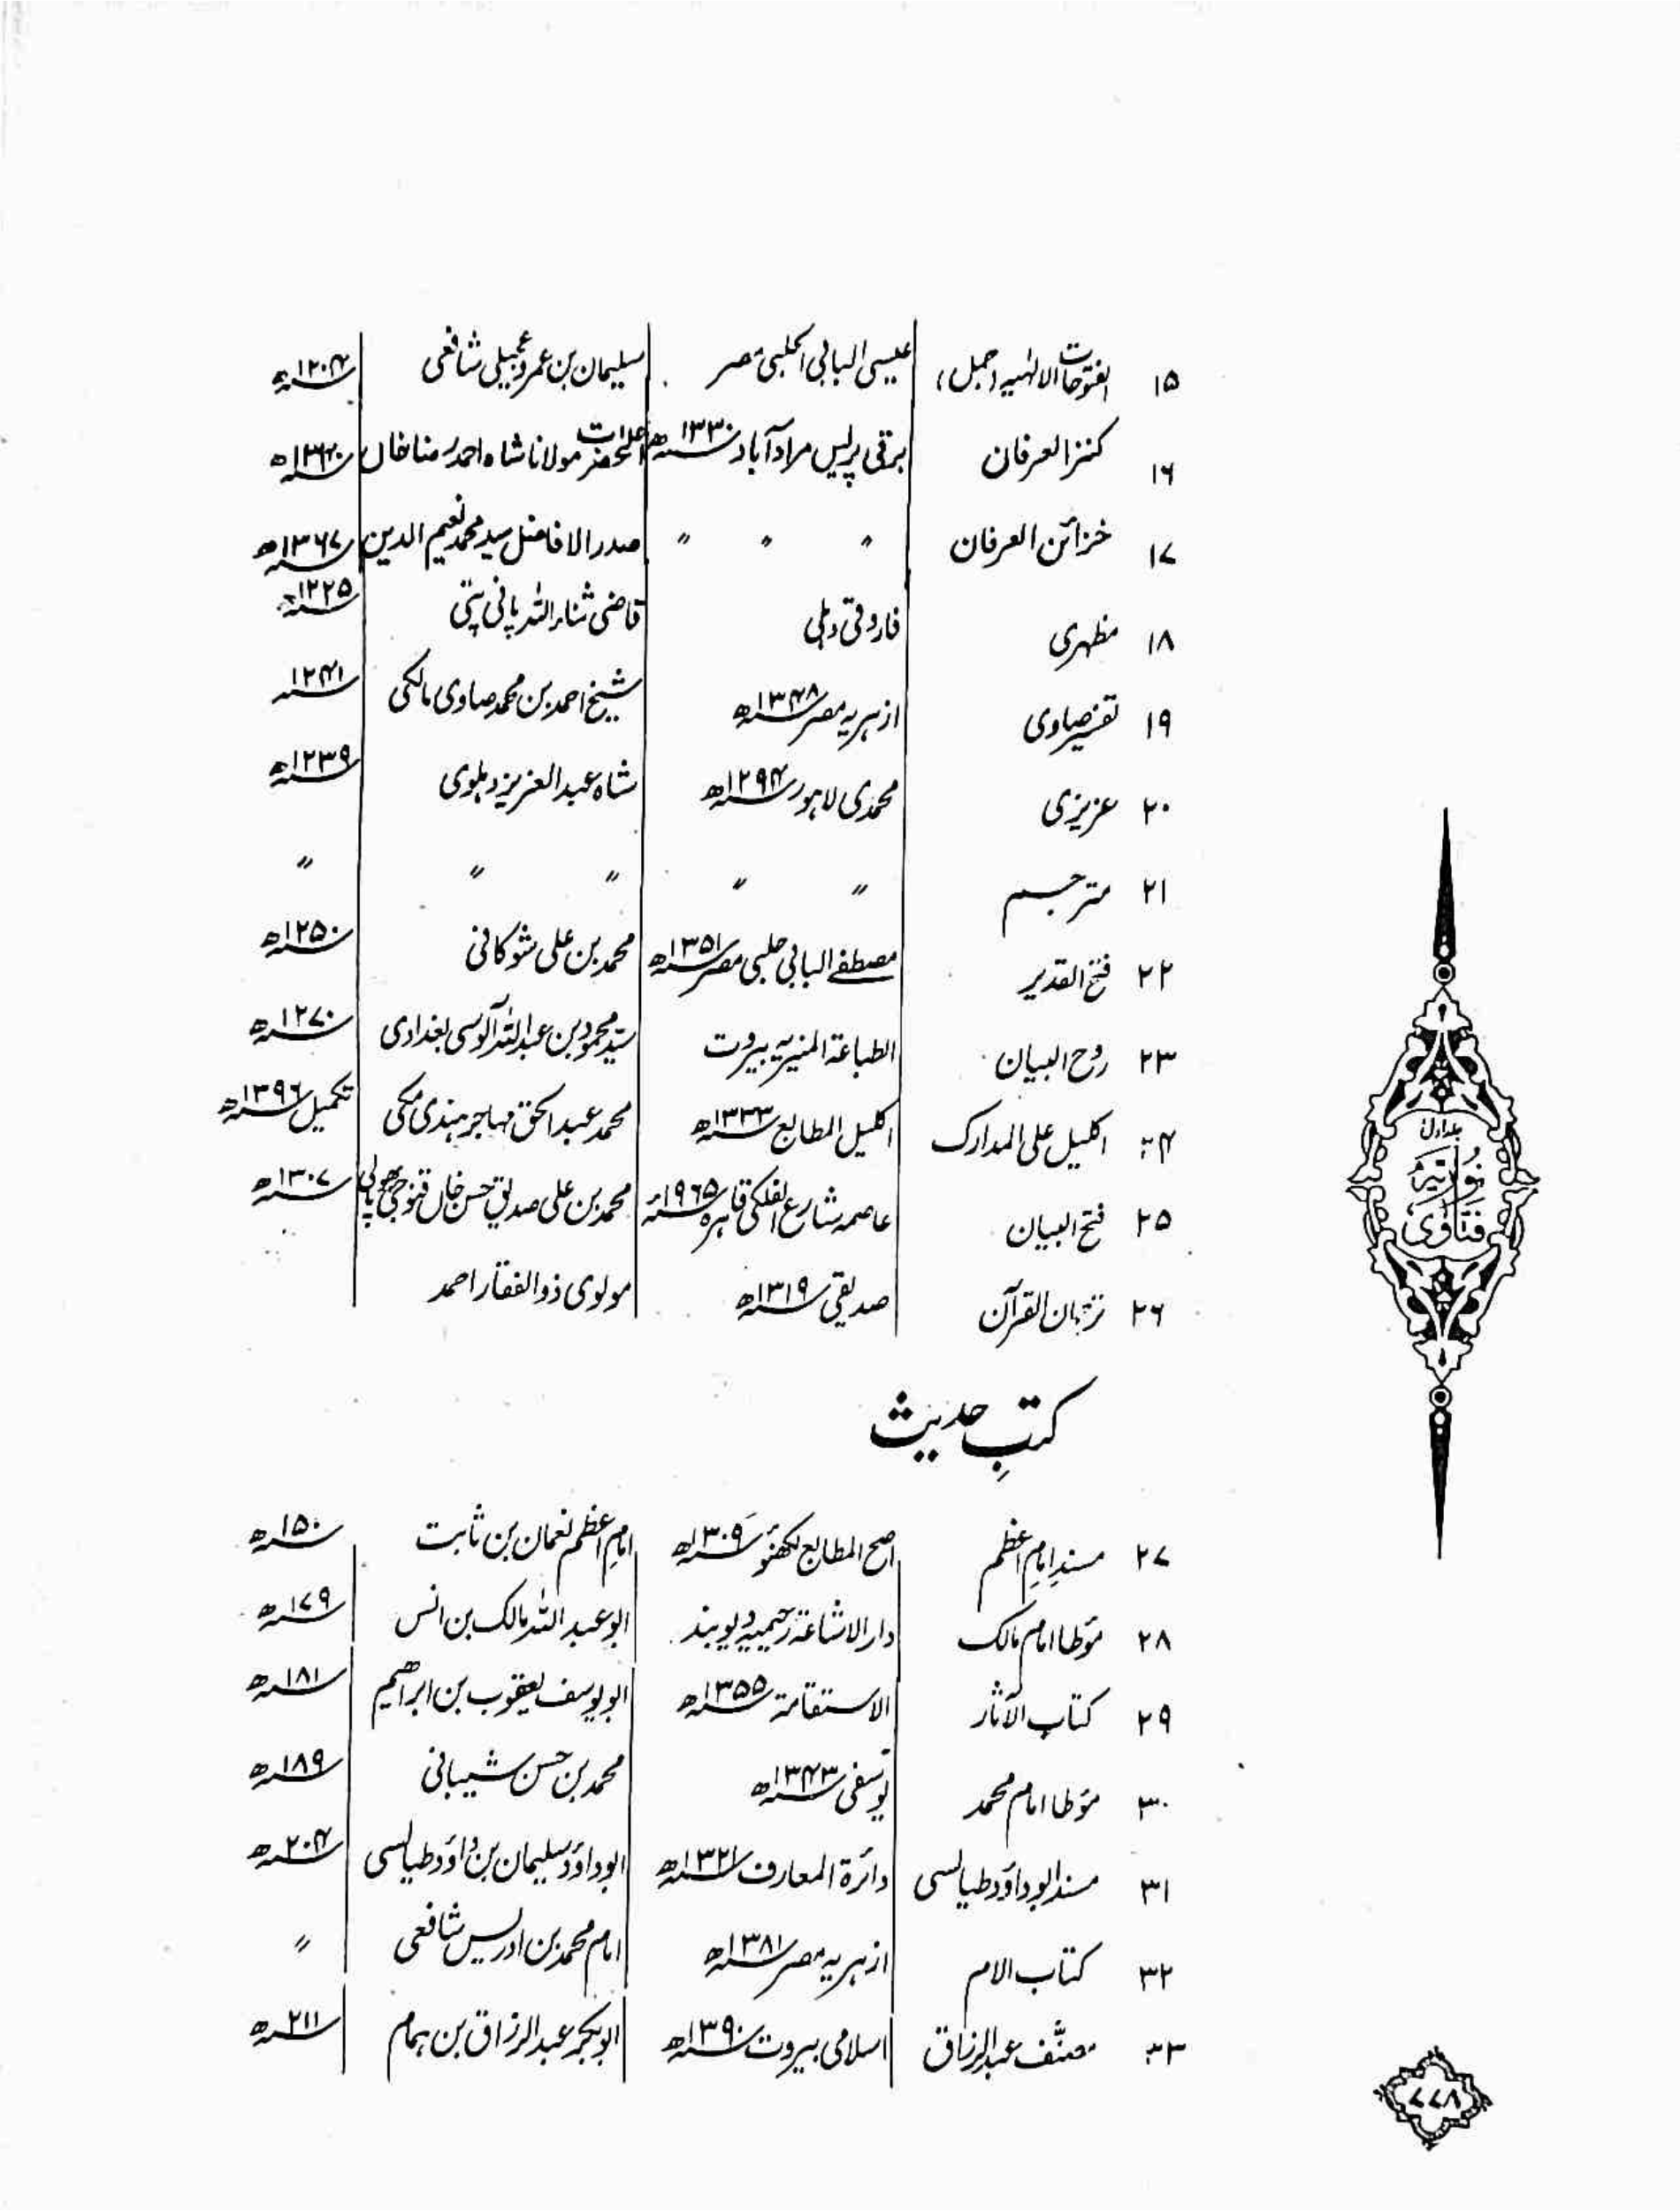 ۱۵ الفتوحات الالٰہیہ (جمل) عیسی البابی الحلبی مصر سلیمان بن عمرو عجیلی شافعی ۱۲۰۴ھ
۱۶ کنز العرفان برقی پریس مرادآباد ۱۳۳۰ھ اعلٰحضرت مولانا شاہ احمد رضا خاں ۱۳۴۰ھ
۱۷ خزائن العرفان 〃 〃 〃 صدر الافاضل سید محمد نعیم الدین ۱۳۶۷ھ
۱۸ مظہری فاروقی دہلی قاضی ثناء اللہ پانی پتی ۱۲۲۵ھ
۱۹ تفسیر صاوی ازہریہ مصر ۱۳۴۸ھ شیخ احمد بن محمد صاوی مالکی ۱۲۴۱
۲۰ عزیزی محمدی لاہور ۱۲۹۴ھ شاہ عبد العزیز دہلوی ۱۲۳۹ھ
۲۱ مترجم 〃 〃 〃 〃 〃
۲۲ فتح القدیر مصطفے البابی حلبی مصر ۱۳۵۱ھ محمد بن علی شوکانی ۱۲۵۰ھ
۲۳ روح البیان الطباعۃ المنیریہ بیروت سید محمود بن عبد اللہ آلوسی بغدادی ۱۲۷۰ھ
۲۴ اکلیل علی المدارک اکلیل المطابع ۱۳۳۳ھ محمد عبد الحق مہاجر ہندی مکی تکمیل ۱۳۹۶ھ
۲۵ فتح البیان عاصمہ شارع الفلکی قاہرہ ۱۹۶۵ء محمد بن علی صدیق حسن خاں قنوجی بھوپالی ۱۳۰۷ھ
۲۶ ترجمان القرآن صدیقی ۱۳۱۹ھ مولوی ذوالفقار احمد
کتبِ حدیث
۲۷ مسندِ امامِ اعظم اصح المطابع لکھنؤ ۱۳۰۹ھ امامِ اعظم نعمان بن ثابت ۱۵۰ھ
۲۸ مؤطا امام مالک دار الاشاعۃ رحیمیہ دیوبند ابو عبد اللہ مالک بن انس ۱۷۹ھ
۲۹ کتاب الآثار الاستقامۃ ۱۳۵۵ھ ابو یوسف یعقوب بن ابراھیم ۱۸۱ھ
۳۰ مؤطا امام محمد یوسفی ۱۳۴۳ھ محمد بن حسن شیبانی ۱۸۹ھ
۳۱ مسند ابو داؤد طیالسی دائرۃ المعارف ۱۳۲۱ھ ابو داؤد سلیمان بن داؤد طیالسی ۲۰۴ھ
۳۲ کتاب الام ازہریہ مصر ۱۳۸۱ھ امام محمد بن ادریس شافعی 〃
۳۳ مصنَّف عبد الرزاق اسلامی بیروت ۱۳۹۰ھ ابوبکر عبد الرزاق بن ہمام ۲۱۱ھ
جلد اول
نُورِیَّہ
فَتَاوٰی
۷۷۸